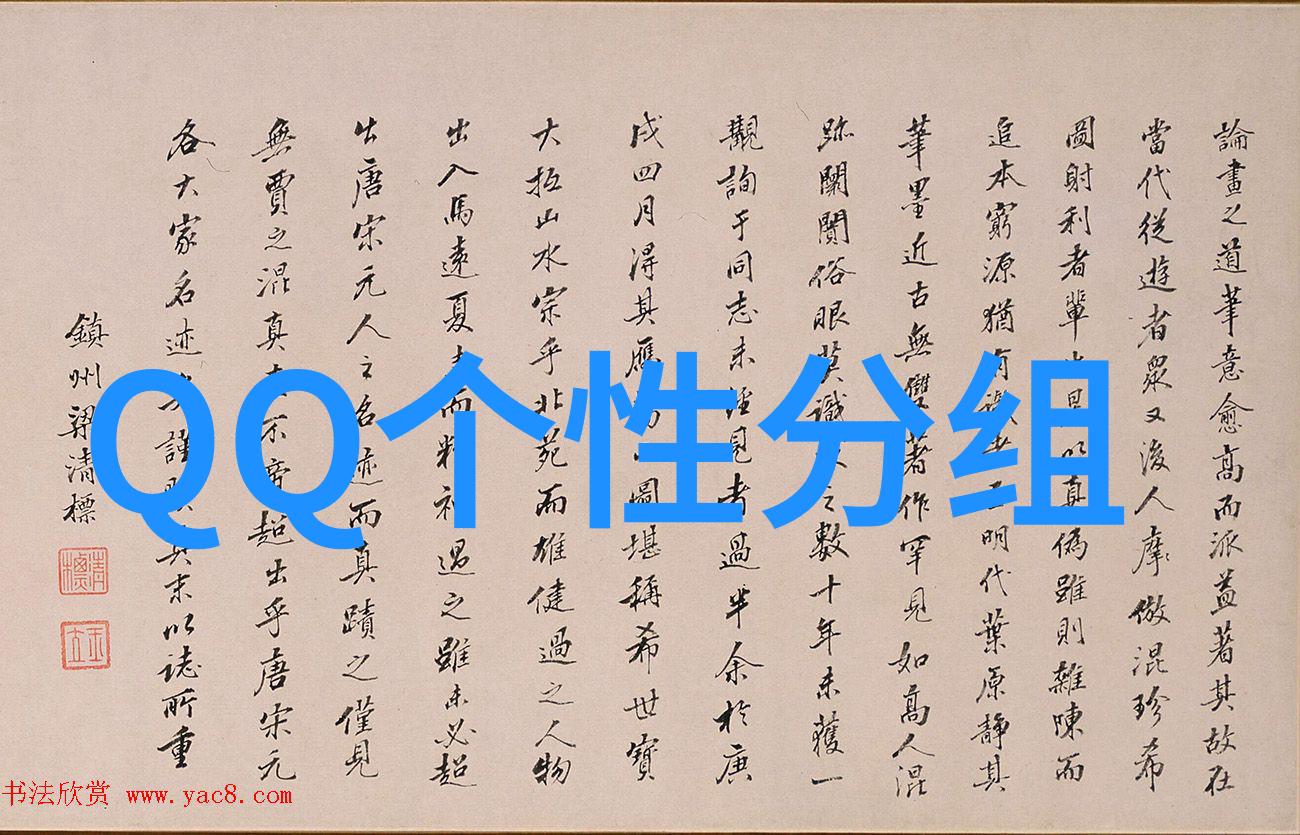 論畫之道筆意愈高而派益著其故在
當代從遊者衆又後人摩倣混珍希
圖射利者輩以真僞雖則雜陳而
追本窮源猶有識明代葉原靜其
筆墨近古無雙著作罕見如高人混
跡闤闠俗眼莫識之數十年未獲一
觀詢于同志未經見者過半余於庚
戌四月得其圖堪稱希世寶
大抵山水宗乎北苑而雄健過之人物
出入馬遠夏而過之雖未必超
出唐宋元人之名迹而真蹟之僅見
無賈之混真不啻超出乎唐宋元
各大家名迹謹末以誌所重
鎮州梁清標
清標
玉立
QQ个性分组
书法欣赏 www.yac8.com